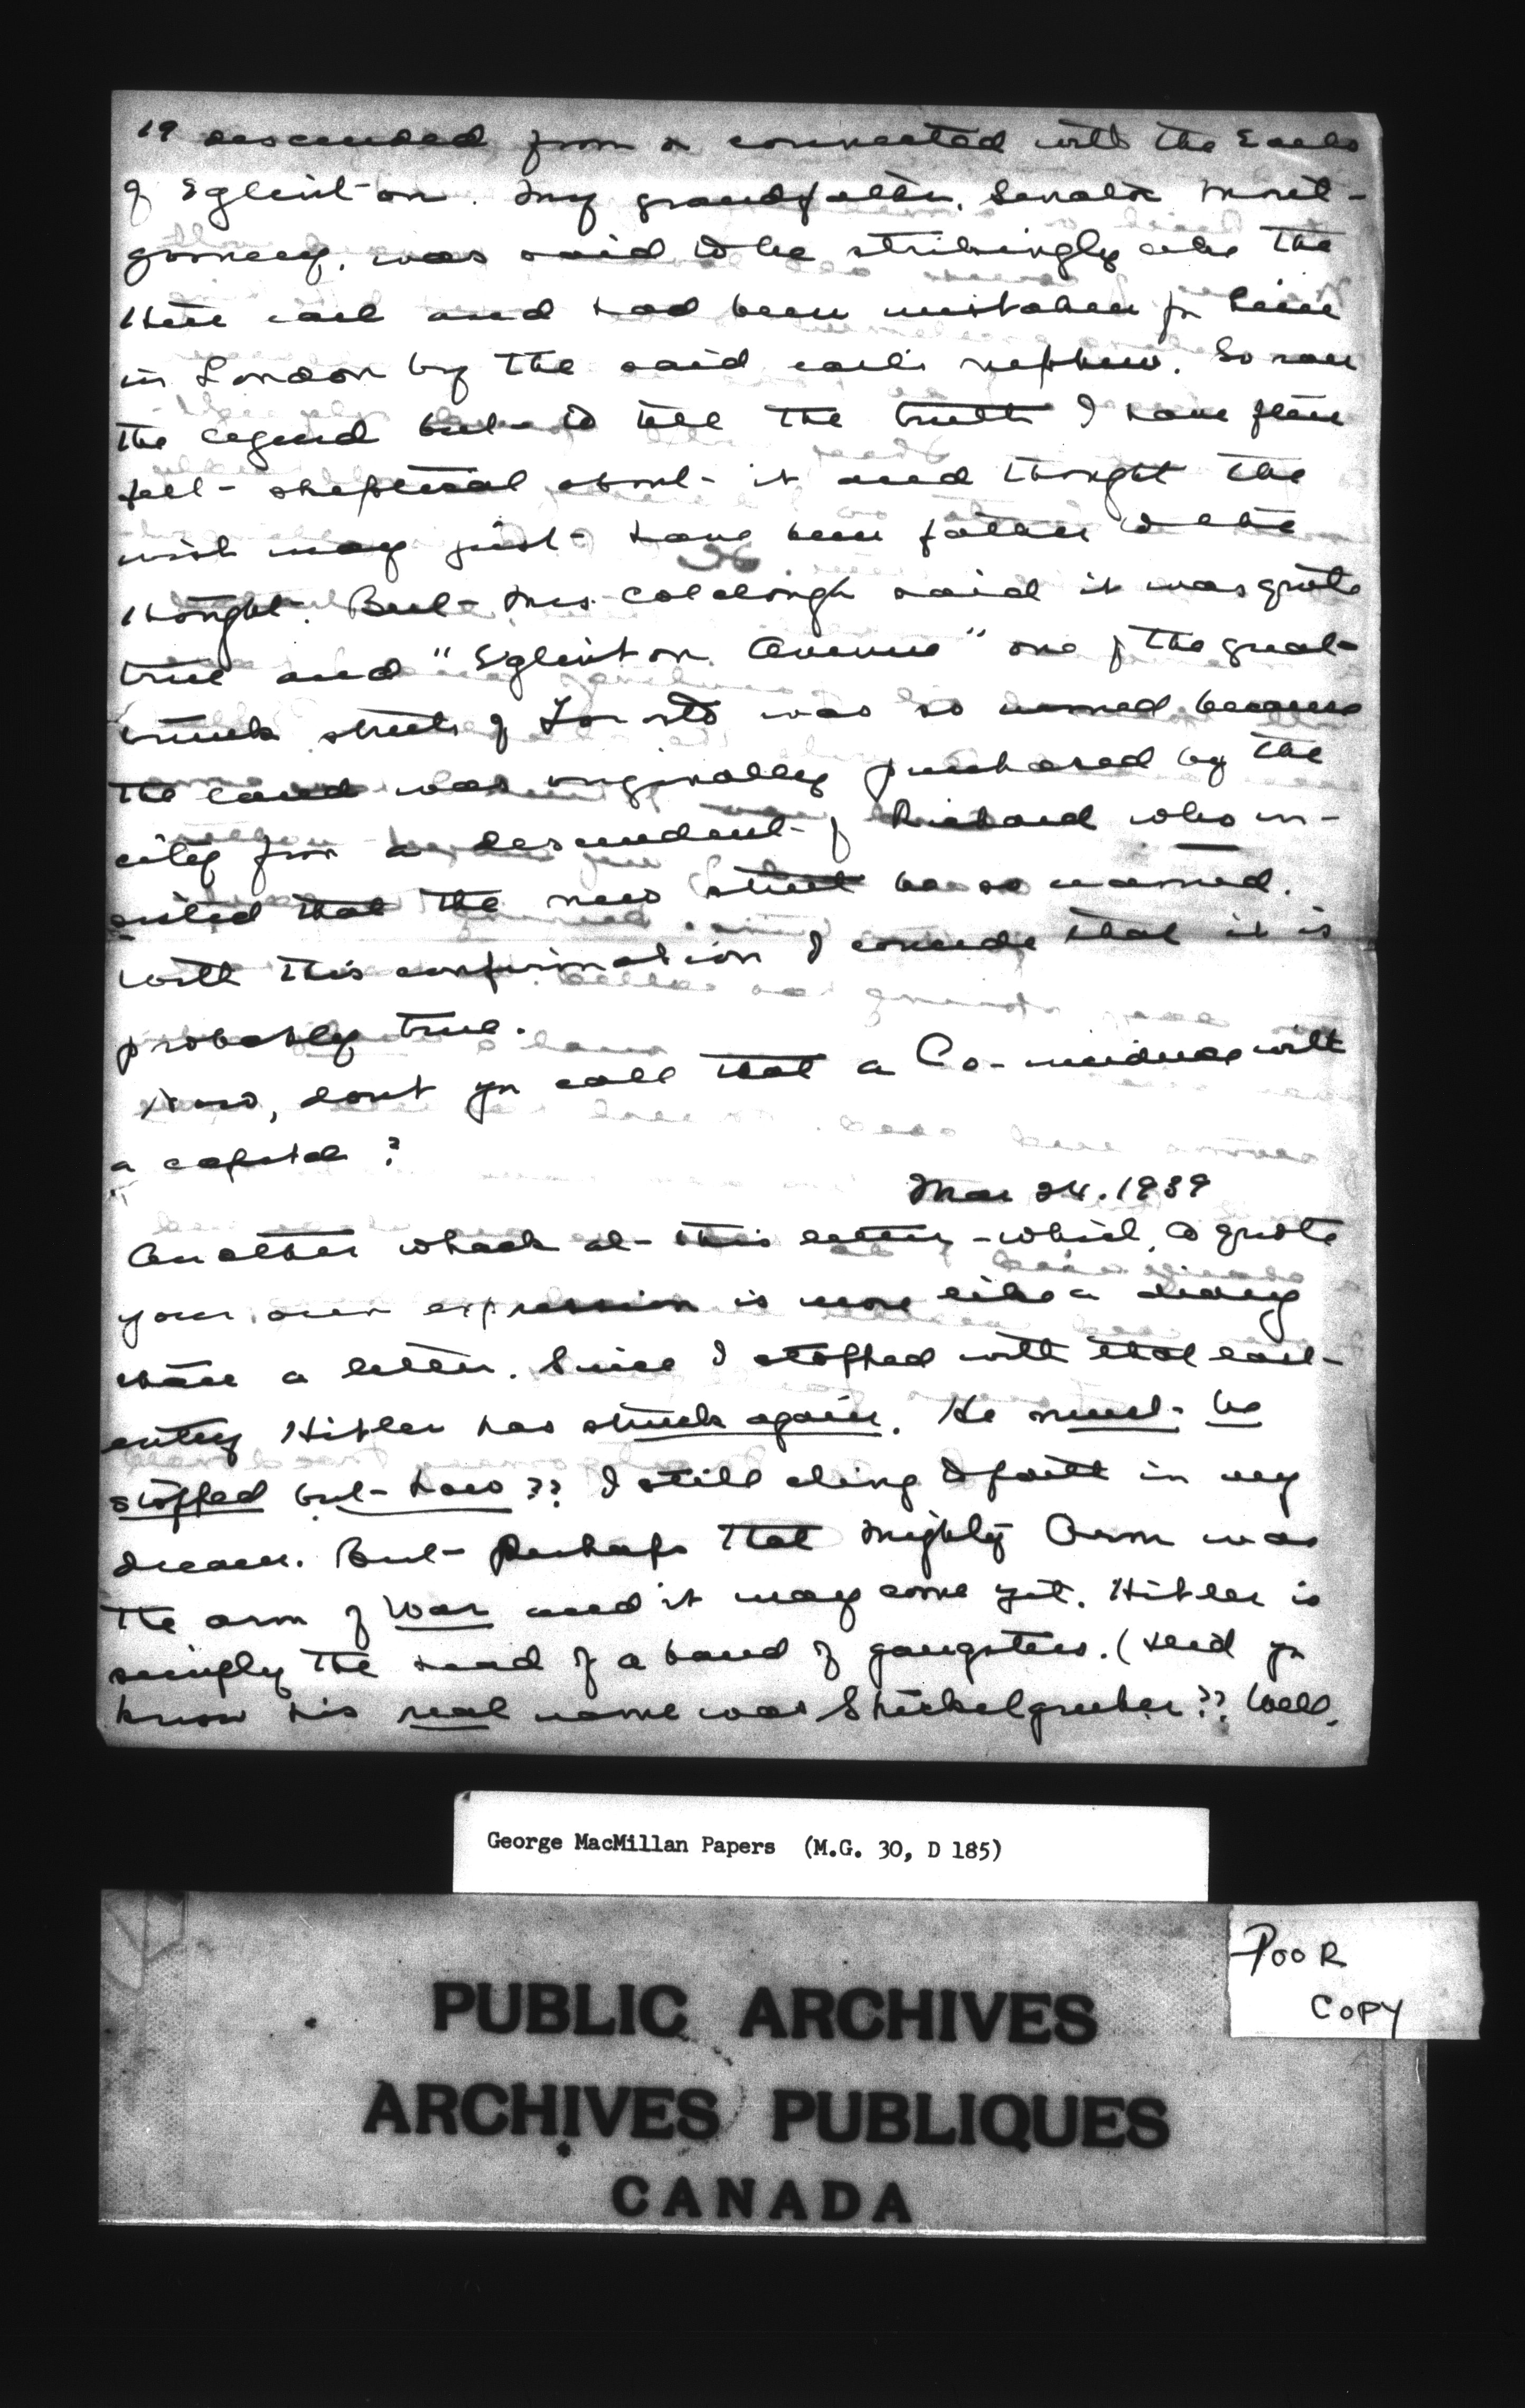 19 descended from or connected with the Earls
of Eglinton. My grandfather, Senator Mont-
gomery, was said to be strikingly like the
then earl and had been mistaken for him
in London by the said earl's nephew. So ran
the legend but to tell the truth I have
felt skeptical about it and thought the
wish may just have been father to the
thought. But Mrs. Colclough said it was quite
true and "Eglinton Avenue" one of the great
trunk streets of Toronto was so named because
the land was originally purchased by the
city from a descendant of Richard who in-
sisted that the new street be so named.
With this confirmation I concede that it is
probably true.
Now, dont you call that a Co-incidence with
a capital?
Mar 24. 1939
Another whack at this letter - which, to quote
your own expression is more like a diary
than a letter. Since I stopped with that last
entry Hitler has struck again. He must be
stopped but how?? I still cling to faith in my
dream. But perhaps that Mighty Arm was
the arm of War and it may come yet. Hitler is
simply the head of a band of gangsters. (Did you
know his real name was Shickelgruber?? Well,
George MacMillan Papers (M.G. 30, D 185)
POOR
COPY
PUBLIC ARCHIVES
ARCHIVES PUBLIQUES
CANADA